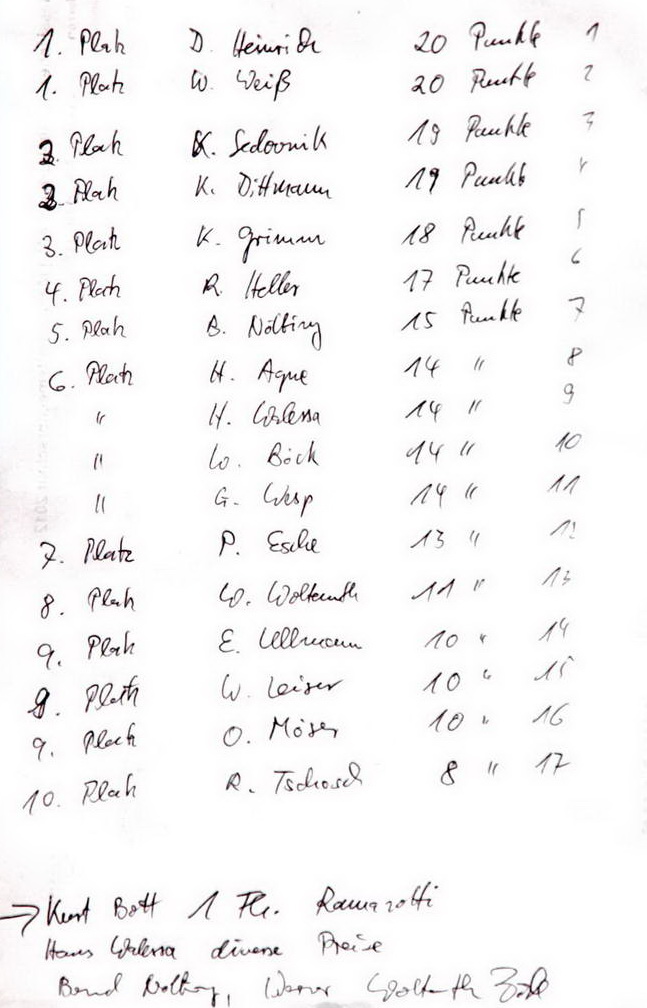 1. Platz D. Heinrich 20 Punkte 1
1. Platz W. Weiß 20 Punkte 2
2. Platz K. Sedovnik 19 Punkte 3
2. Platz K. Dittmann 19 Punkte 4
3. Platz K. Grimm 18 Punkte 5
4. Platz R. Heller 17 Punkte 6
5. Platz B. Nölting 15 Punkte 7
6. Platz H. Aque 14 " 8
" H. Walessa 14 " 9
" W. Böck 14 " 10
" G. Wesp 14 " 11
7. Platz P. Esche 13 " 12
8. Platz W. Woltemth 11 " 13
9. Platz E. Ullmann 10 " 14
9. Platz W. Leiser 10 " 15
9. Platz O. Möser 10 " 16
10. Platz R. Tschosch 8 " 17
→ Kurt Bott 1 Fl. Ramazotti
Hans Walessa diverse Preise
Bernd Nölting, Werner